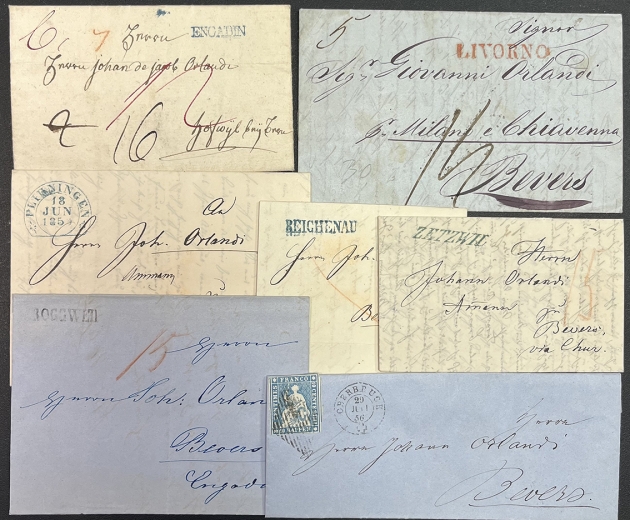 ENGADIN
6
7
Herrn
Herrn Johan de Jacob Orlandi
16
Hofwyl bey
5
Signor
LIVORNO
Sigr Giovanni Orlandi
pr Milano e Chiavenna
Bevers
PLIENINGEN
18
JUN
185
An
Herrn Joh. Orlandi
Ammann
zu
REICHENAU
Herrn Joh.
Be
ZETZWIL
Herrn
Johann Orlandi
Amann
zu
Bevers
via Chur.
ROGGWEIL
15
Herrn
Herrn Joh: Orlan
Bevers
Engadi
FRANCO
29
JULI
56
Herrn
Herrn Johann Orlandi
Bevers.